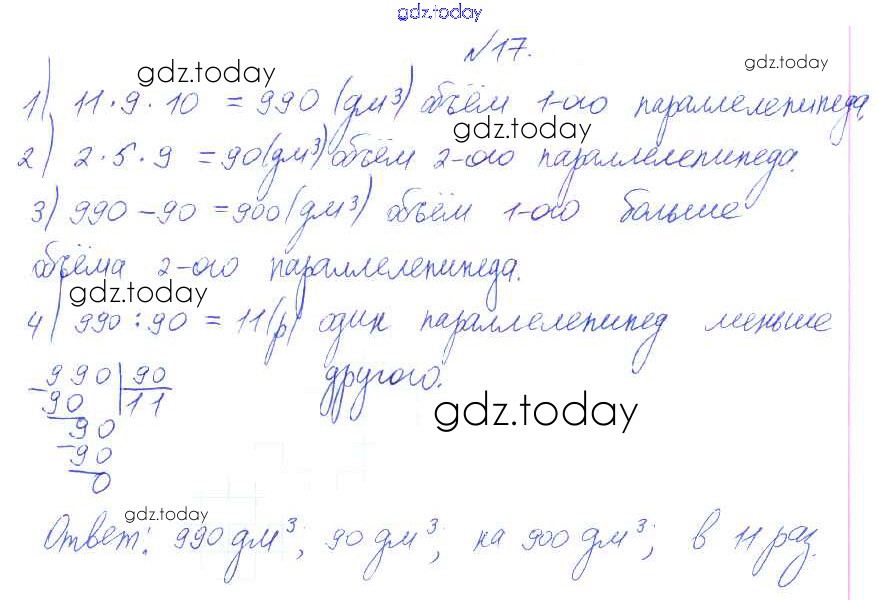 gdz.today
№17.
gdz.today gdz.today
1) 11·9·10 = 990 (дм³) объём 1-ого параллелепипеда,
gdz.today
2) 2·5·9 = 90 (дм³) объём 2-ого параллелепипеда.
3) 990 - 90 = 900 (дм³) объём 1-ого больше
объёма 2-ого параллелепипеда.
gdz.today
4) 990 : 90 = 11 (р) один параллелепипед меньше
другого.
990 | 90
- 90 | 11
gdz.today
90
- 90
0
gdz.today
Ответ: 990 дм³; 90 дм³; на 900 дм³; в 11 раз.